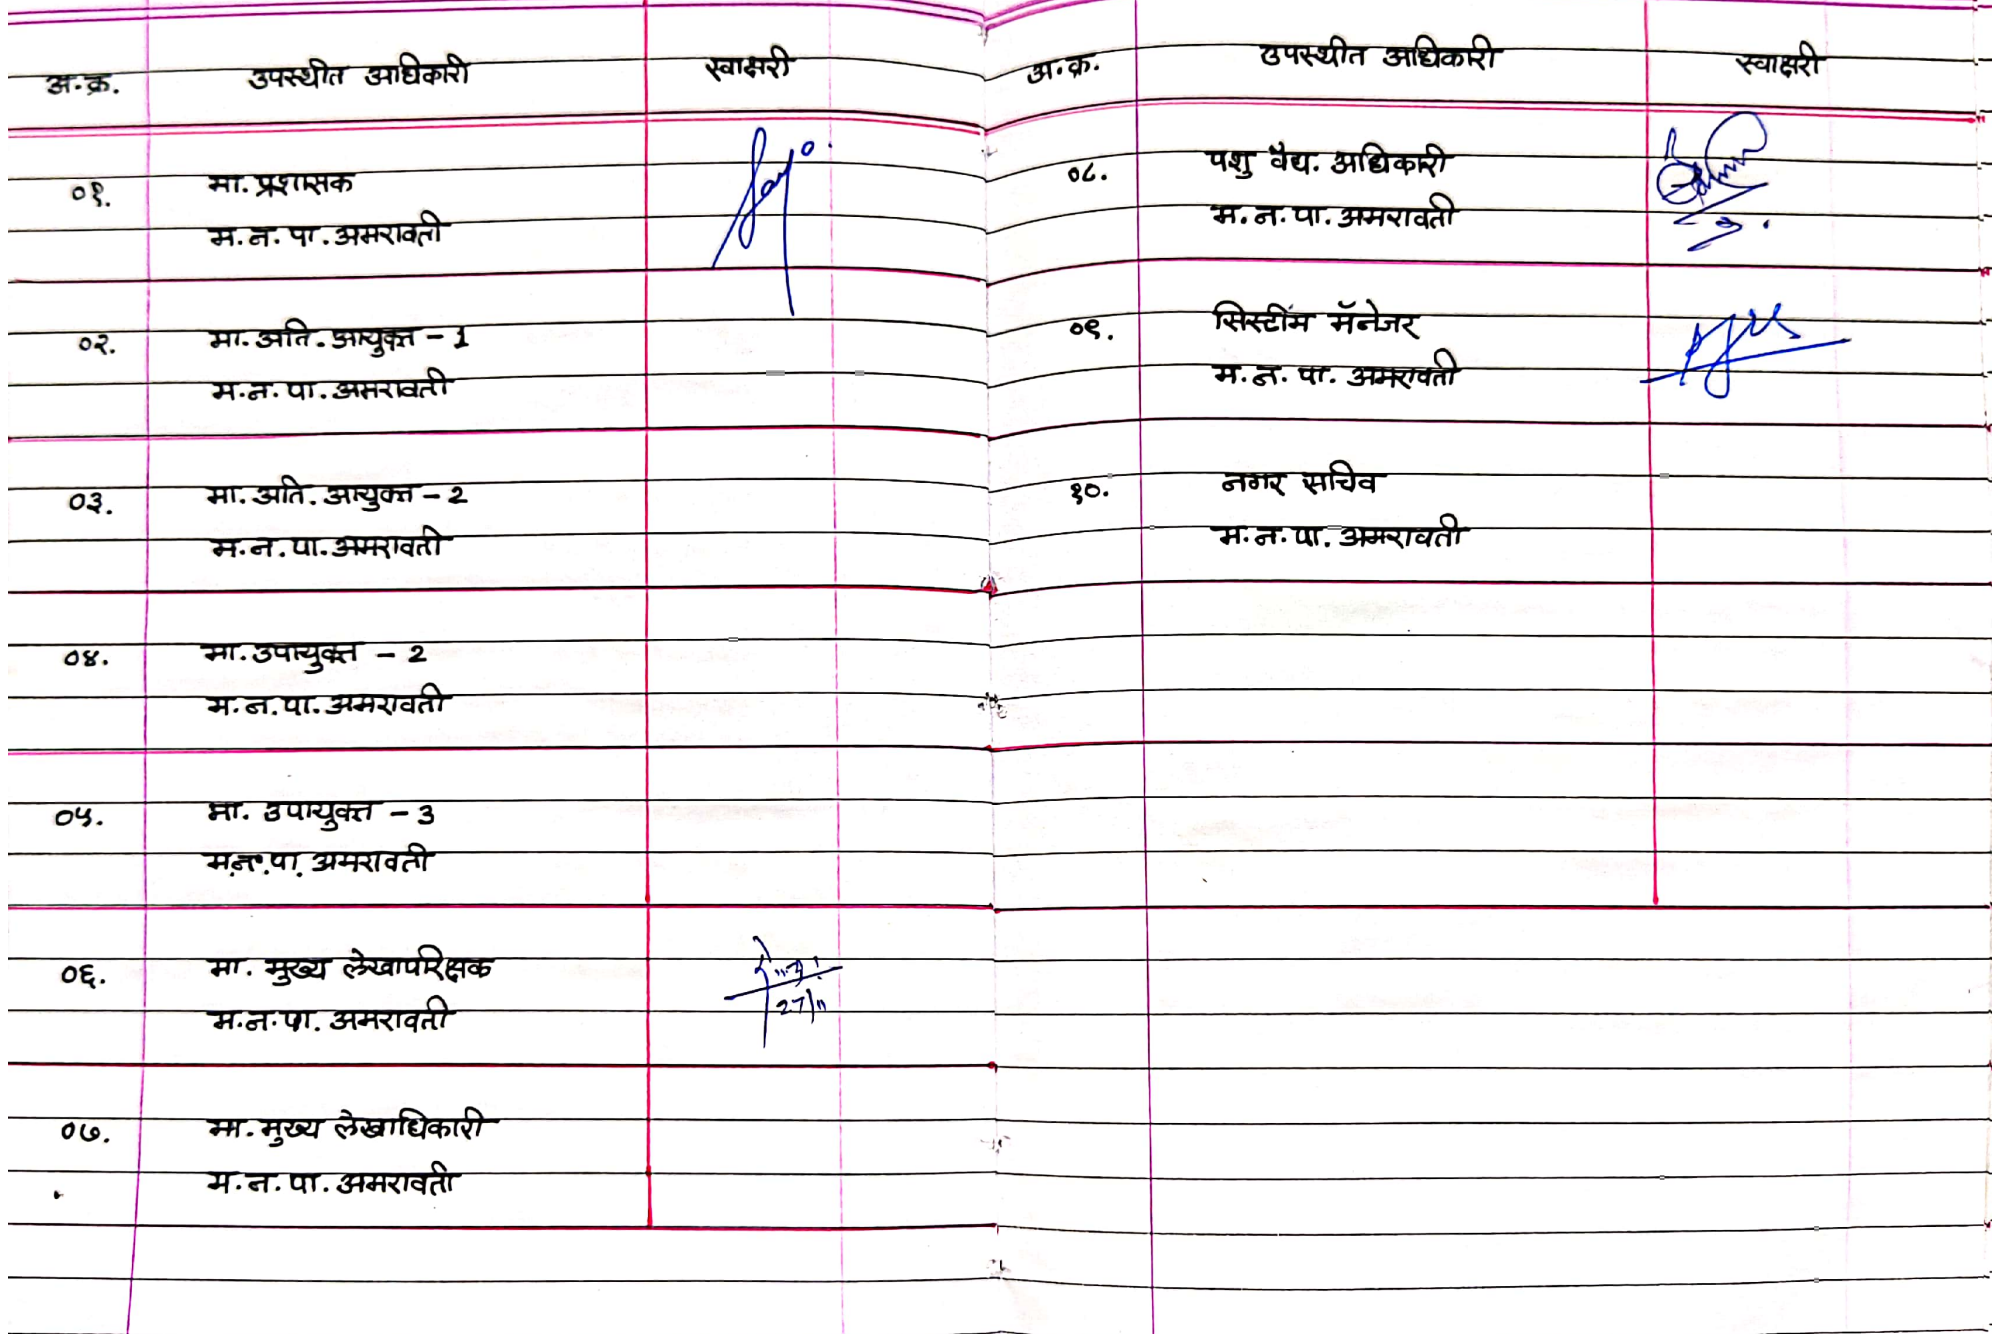 अ.क्र. उपस्थीत अधिकारी स्वाक्षरी
०१. मा. प्रशासक
म.न.पा. अमरावती
०२. मा. अति. आयुक्त - 1
म.न.पा. अमरावती
०३. मा. अति. आयुक्त - 2
म.न.पा. अमरावती
०४. मा. उपायुक्त - 2
म.न.पा. अमरावती
०५. मा. उपायुक्त - 3
म.न.पा. अमरावती
०६. मा. मुख्य लेखापरिक्षक
म.न.पा. अमरावती
27/11
०७. मा. मुख्य लेखाधिकारी
म.न.पा. अमरावती
अ.क्र. उपस्थीत अधिकारी स्वाक्षरी
०८. पशु वैद्य. अधिकारी
म.न.पा. अमरावती
०९. सिस्टीम मॅनेजर
म.न.पा. अमरावती
१०. नगर सचिव
म.न.पा. अमरावती